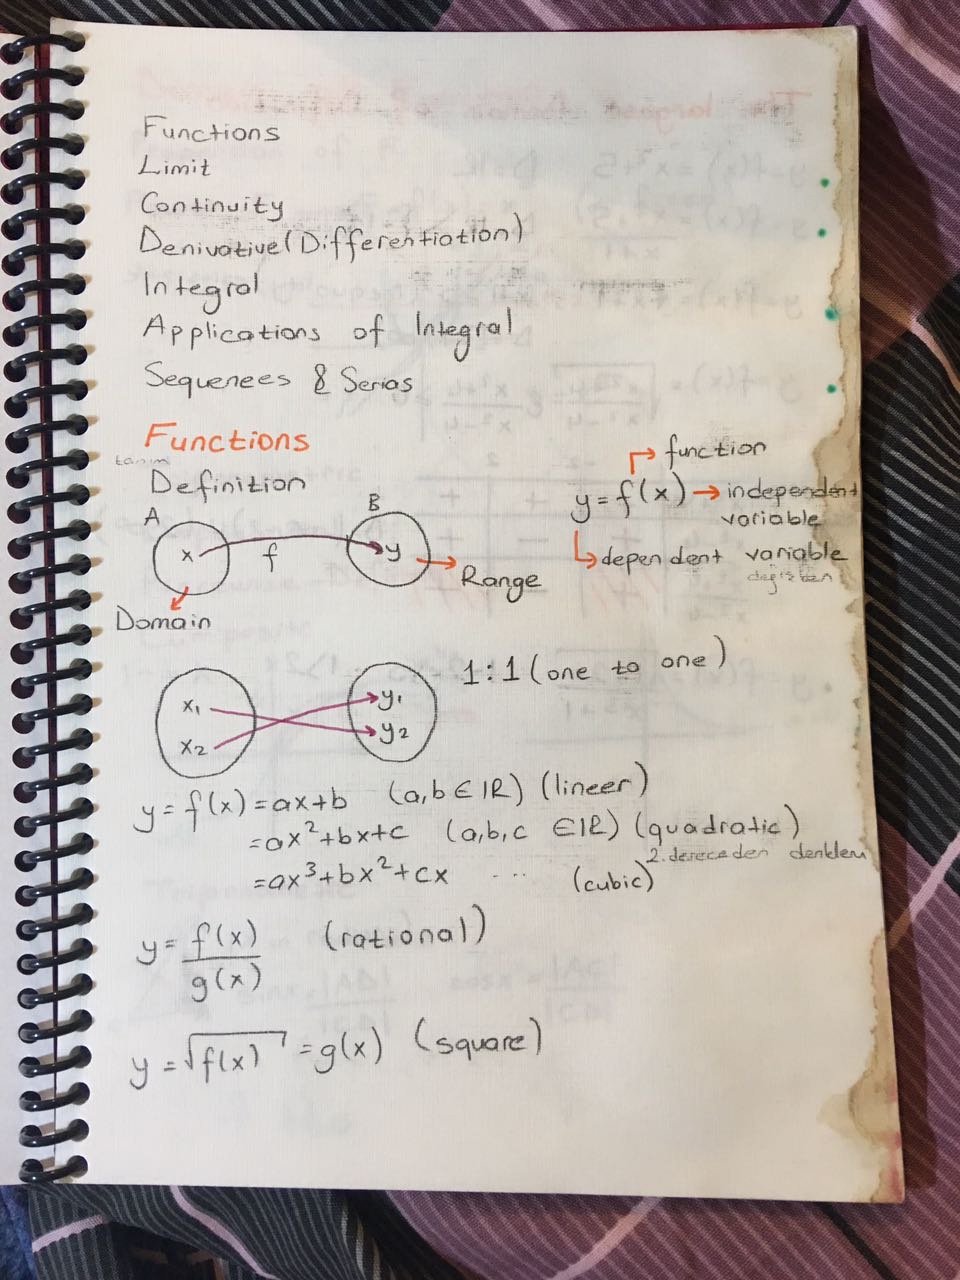 Functions
Limit
Continuity
Derivative (Differentiation)
Integral
Applications of Integral
Sequences & Series
Functions
tanım
Definition
A
B
x
f
y
Range
Domain
function
y = f(x) → independent
variable
dependent variable
değişken
x₁
x₂
y₁
y₂
1:1 (one to one)
y = f(x) = ax+b (a,b ∈ IR) (lineer)
= ax²+bx+c (a,b,c ∈ IR) (quadratic)
2. dereceden denklem
= ax³+bx²+cx ... (cubic)
y = f(x)/g(x) (rational)
y = √f(x) = g(x) (square)